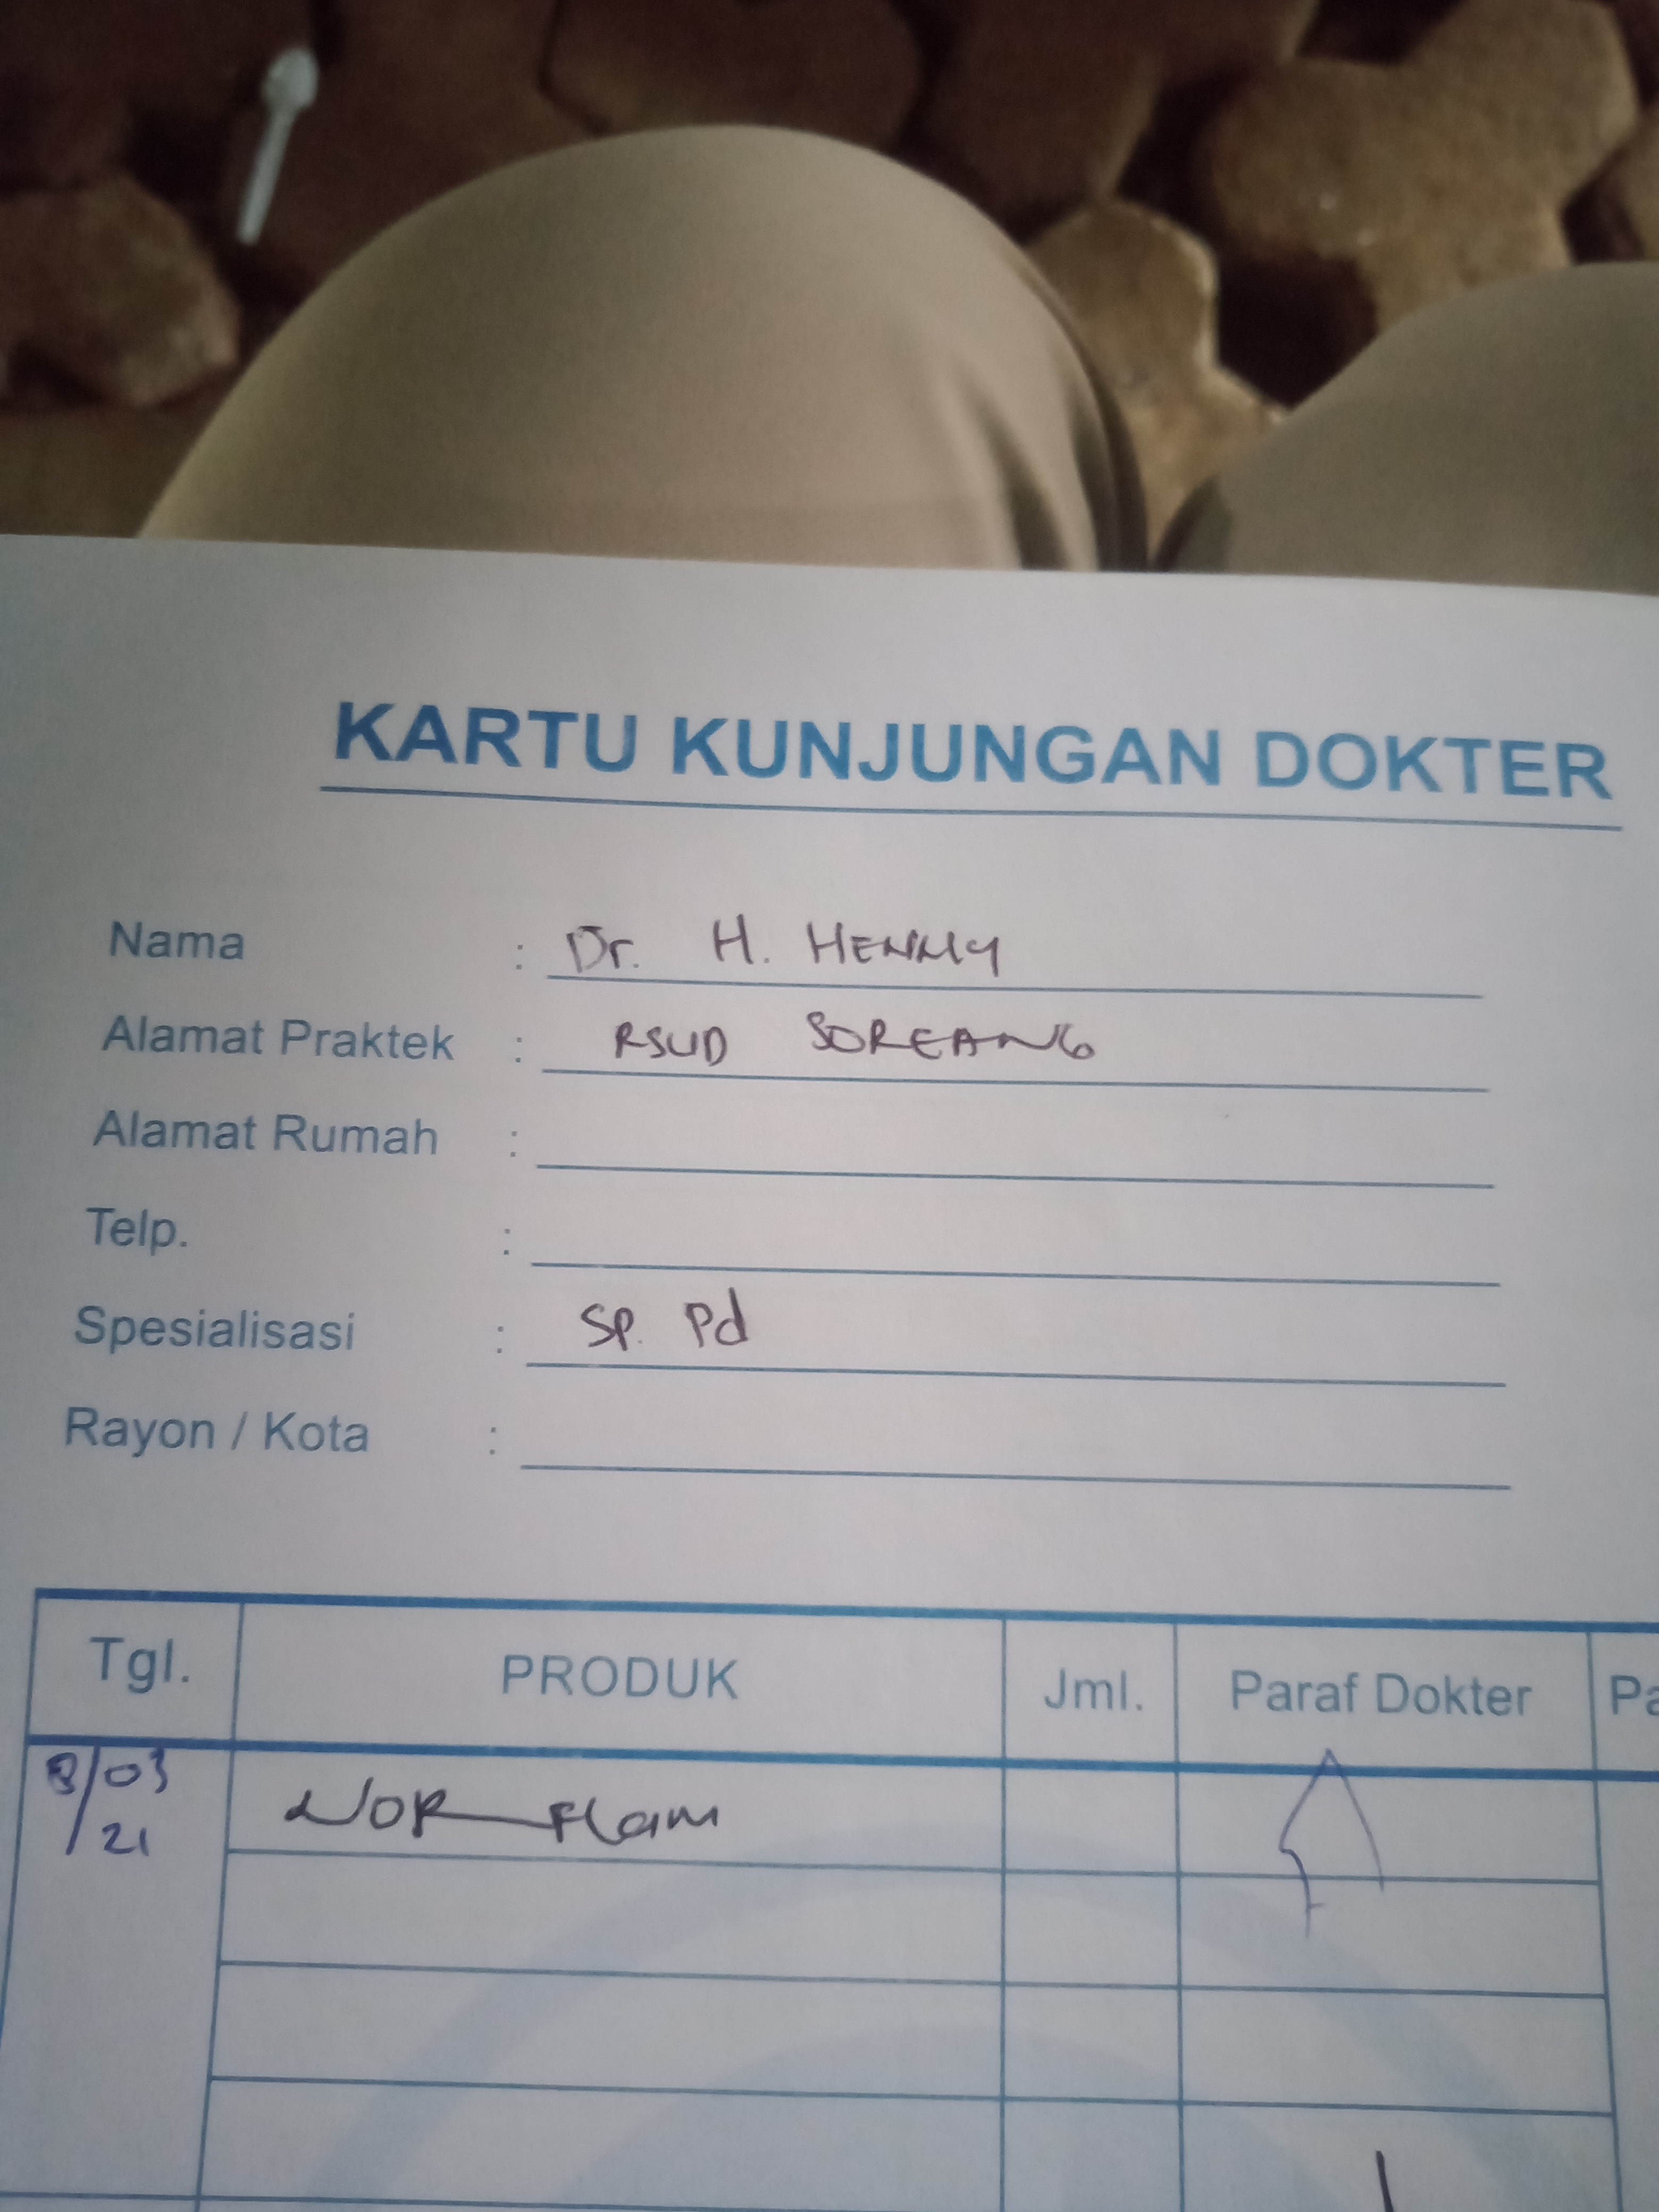 KARTU KUNJUNGAN DOKTER
Nama : Dr. H. HENNY
Alamat Praktek : RSUD SOREANG
Alamat Rumah :
Telp. :
Spesialisasi : SP. Pd
Rayon / Kota :
Tgl. PRODUK Jml. Paraf Dokter Pa
8/03/21 NOR flam